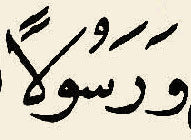 وَرَسُولاً